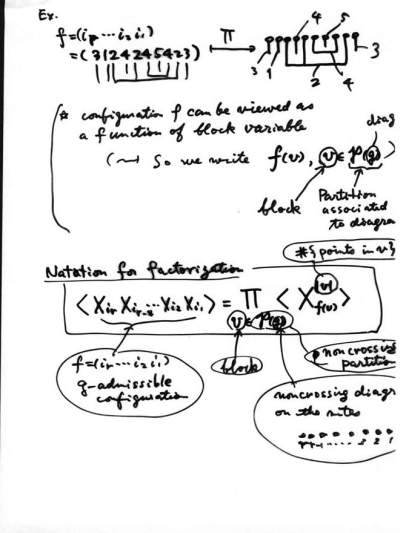 Ex.
f=(ip⋯i2i1)
=(31242454 23)
π
4 5
3 1 2 4 3
☆ configuration f can be viewed as
a function of block variable
(⇝ So we write f(v), v∈P(g)
diag
block
Partition
associated
to diagra
#{points in v}
Notation for factorization
⟨Xir Xir-1⋯Xi2 Xi1⟩ = Π ⟨X|v|f(v)⟩
v∈P(g)
f=(ir⋯i2i1)
g-admissible
configuration
block
noncrossing
partitio
noncrossing diagr
on the sites
r r-1 ⋯ 3 2 1